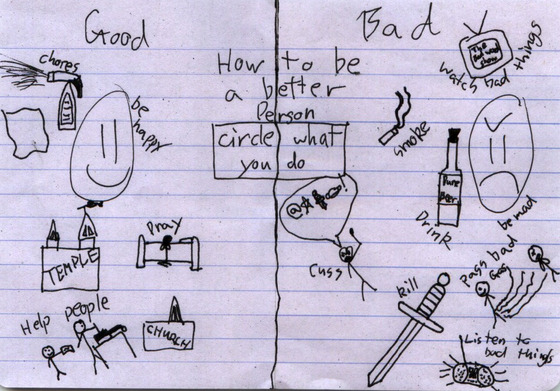 Good
Bad
How to be
a better
Person
circle what
you do
chores
be happy
TEMPLE
Pray
Help people
CHURCH
@*$
Cuss
The
Bad word
show
watch bad things
smoke
Pure
Beer
Drink
be mad
kill
Pass bad
Gas
Listen to
bad things